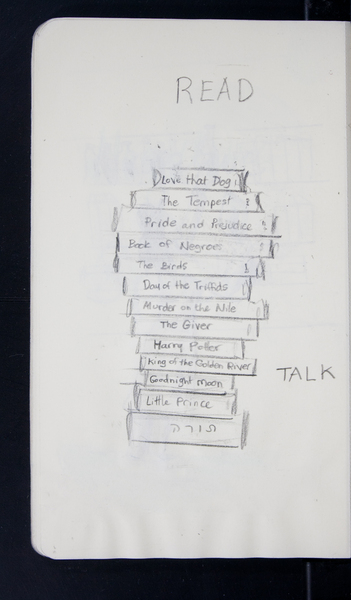 READ
Love that Dog
The Tempest
Pride and Prejudice
Book of Negroes
The Birds
Day of the Triffids
Murder on the Nile
The Giver
Harry Potter
King of the Golden River
TALK
Goodnight Moon
Little Prince
תורה